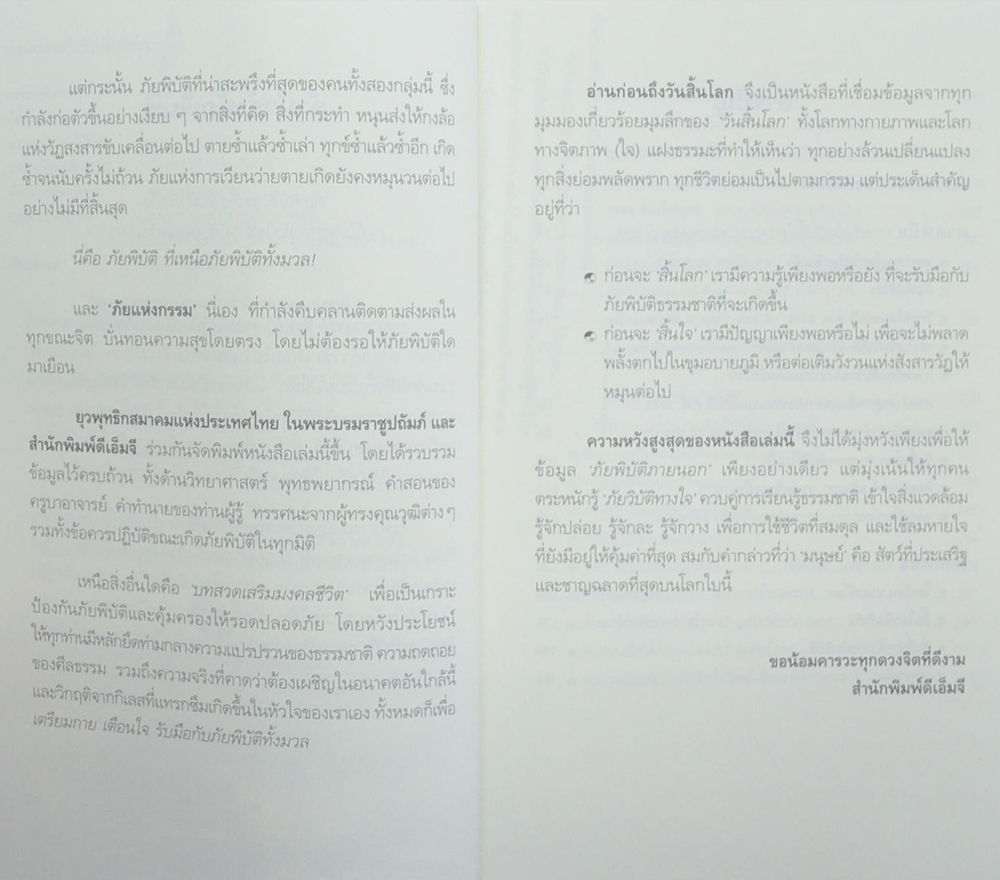 แต่กระนั้น ภัยพิบัติที่น่าสะพรึงที่สุดของคนทั้งสองกลุ่มนี้ ซึ่ง
กำลังก่อตัวขึ้นอย่างเงียบ ๆ จากสิ่งที่คิด สิ่งที่กระทำ หนุนส่งให้กงล้อ
แห่งวัฏสงสารขับเคลื่อนต่อไป ตายซ้ำแล้วซ้ำเล่า ทุกข์ซ้ำแล้วซ้ำอีก เกิด
ซ้ำจนนับครั้งไม่ถ้วน ภัยแห่งการเวียนว่ายตายเกิดยังคงหมุนวนต่อไป
อย่างไม่มีที่สิ้นสุด
นี่คือ ภัยพิบัติ ที่เหนือภัยพิบัติทั้งมวล!
และ 'ภัยแห่งกรรม' นี่เอง ที่กำลังคืบคลานติดตามส่งผลใน
ทุกขณะจิต บั่นทอนความสุขโดยตรง โดยไม่ต้องรอให้ภัยพิบัติใด
มาเยือน
ยุวพุทธิกสมาคมแห่งประเทศไทย ในพระบรมราชูปถัมภ์ และ
สำนักพิมพ์ดีเอ็มจี ร่วมกันจัดพิมพ์หนังสือเล่มนี้ขึ้น โดยได้รวบรวม
ข้อมูลไว้ครบถ้วน ทั้งด้านวิทยาศาสตร์ พุทธพยากรณ์ คำสอนของ
ครูบาอาจารย์ คำทำนายของท่านผู้รู้ ทรรศนะจากผู้ทรงคุณวุฒิต่างๆ
รวมทั้งข้อควรปฏิบัติขณะเกิดภัยพิบัติในทุกมิติ
เหนือสิ่งอื่นใดคือ 'บทสวดเสริมมงคลชีวิต' เพื่อเป็นเกราะ
ป้องกันภัยพิบัติและคุ้มครองให้รอดปลอดภัย โดยหวังประโยชน์
ให้ทุกท่านมีหลักยึดท่ามกลางความแปรปรวนของธรรมชาติ ความถดถอย
ของศีลธรรม รวมถึงความจริงที่คาดว่าต้องเผชิญในอนาคตอันใกล้นี้
และวิกฤติจากกิเลสที่แทรกซึมเกิดขึ้นในหัวใจของเราเอง ทั้งหมดก็เพื่อ
เตรียมกาย เตือนใจ รับมือกับภัยพิบัติทั้งมวล
อ่านก่อนถึงวันสิ้นโลก จึงเป็นหนังสือที่เชื่อมข้อมูลจากทุก
มุมมองเกี่ยวร้อยมุมลึกของ 'วันสิ้นโลก' ทั้งโลกทางกายภาพและโลก
ทางจิตภาพ (ใจ) แฝงธรรมะที่ทำให้เห็นว่า ทุกอย่างล้วนเปลี่ยนแปลง
ทุกสิ่งย่อมพลัดพราก ทุกชีวิตย่อมเป็นไปตามกรรม แต่ประเด็นสำคัญ
อยู่ที่ว่า
ก่อนจะ 'สิ้นโลก' เรามีความรู้เพียงพอหรือยัง ที่จะรับมือกับ
ภัยพิบัติธรรมชาติที่จะเกิดขึ้น
ก่อนจะ 'สิ้นใจ' เรามีปัญญาเพียงพอหรือไม่ เพื่อจะไม่พลาด
พลั้งตกไปในขุมอบายภูมิ หรือต่อเติมวังวนแห่งสังสารวัฏให้
หมุนต่อไป
ความหวังสูงสุดของหนังสือเล่มนี้ จึงไม่ได้มุ่งหวังเพียงเพื่อให้
ข้อมูล 'ภัยพิบัติภายนอก' เพียงอย่างเดียว แต่มุ่งเน้นให้ทุกคน
ตระหนักรู้ 'ภัยวิบัติทางใจ' ควบคู่การเรียนรู้ธรรมชาติ เข้าใจสิ่งแวดล้อม
รู้จักปล่อย รู้จักละ รู้จักวาง เพื่อการใช้ชีวิตที่สมดุล และใช้ลมหายใจ
ที่ยังมีอยู่ให้คุ้มค่าที่สุด สมกับคำกล่าวที่ว่า 'มนุษย์' คือ สัตว์ที่ประเสริฐ
และชาญฉลาดที่สุดบนโลกใบนี้
ขอน้อมคารวะทุกดวงจิตที่ดีงาม
สำนักพิมพ์ดีเอ็มจี